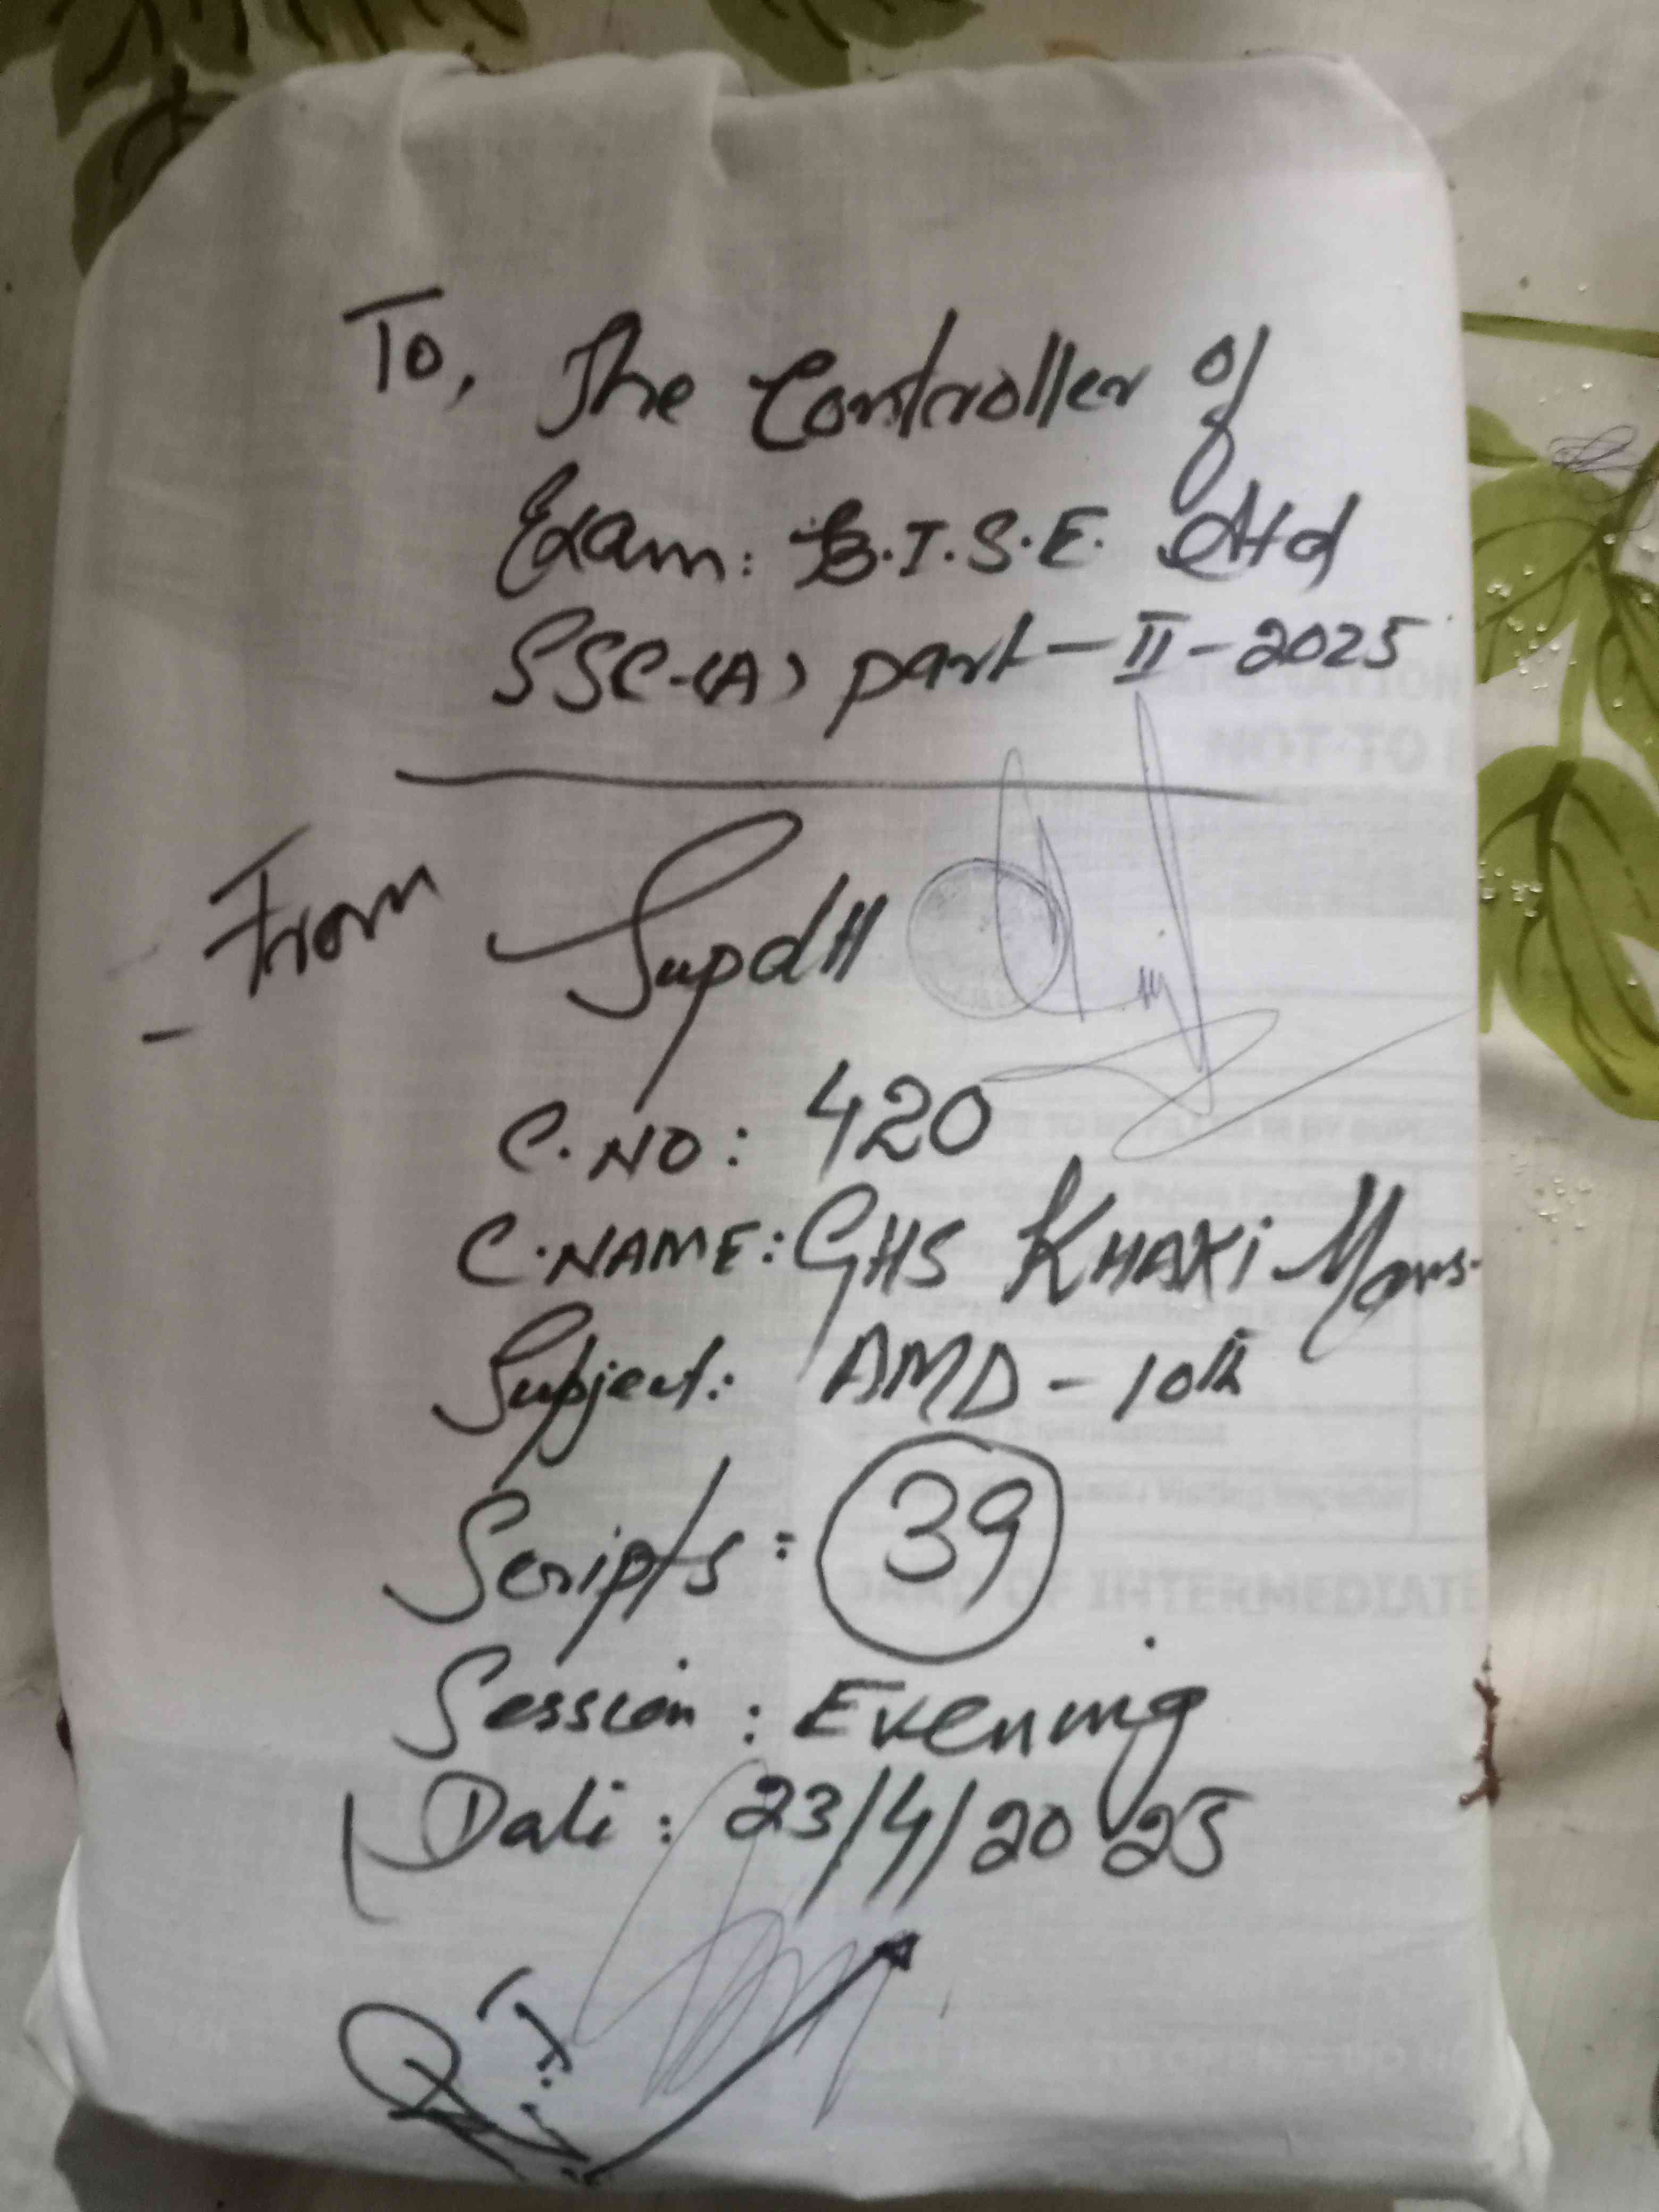 To, The Controller of
Exam: B.I.S.E. Atd
SSC-(A) part-II-2025
From Supdtt
C.NO: 420
C.NAME: GHS KHAKI
Subject: AMD - 10th
Scripts: 39
Session: Evening
Date: 23/4/2025
NOT TO
OF INTERMEDIATE